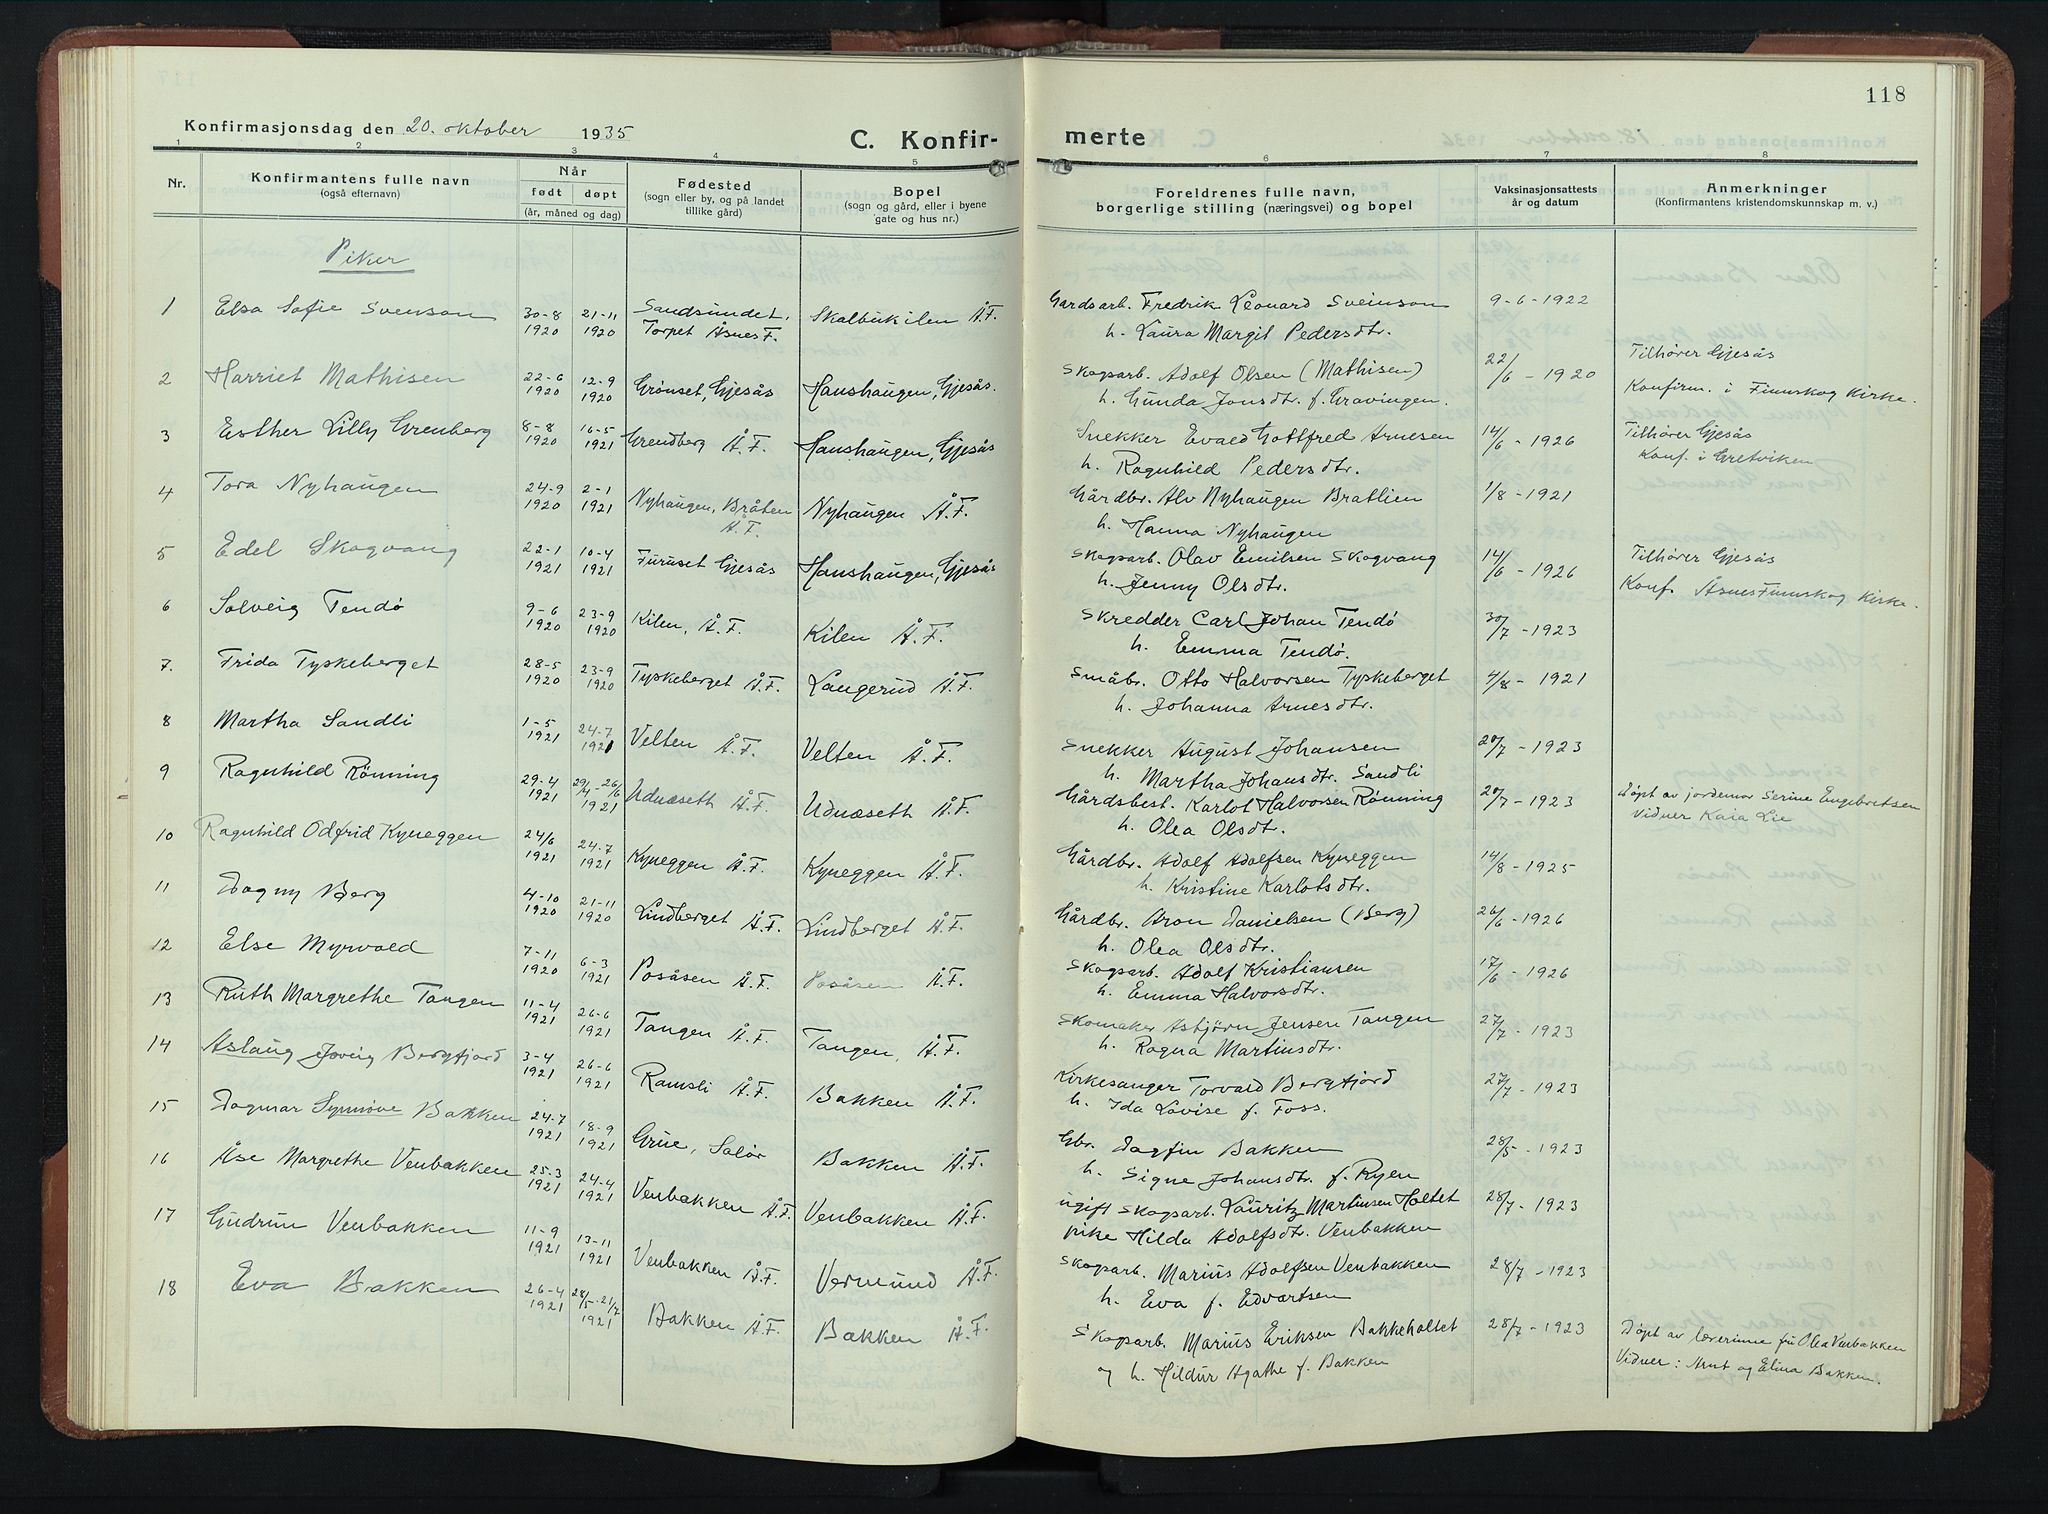 118
Konfirmasjonsdag den 20. oktober 1935
C. Konfir-
merte
1 2 3 4 5 6 7 8
Nr.
Konfirmantens fulle navn
(også efternavn)
Når
født døpt
(år, måned og dag)
Fødested
(sogn eller by, og på landet
tillike gård)
Bopel
(sogn og gård, eller i byene
gate og hus nr.)
Foreldrenes fulle navn,
borgerlige stilling (næringsvei) og bopel
Vaksinasjonsattests
år og datum
Anmerkninger
(Konfirmantens kristendomskunnskap m. v.)
Piker
1 Elsa Sofie Svenson 30-8 1920 21-11 1920 Sandsundet, Torpet Åsnes F. Skalbukilen Å.F. Gardsarb. Fredrik Leonard Sveinson 9-6-1922
h. Laura Margit Pedersdtr.
2 Harriet Mathisen 22-6 1920 12-9 1920 Grønset, Gjesås Hanshaugen, Gjesås. Skogsarb. Adolf Olsen (Mathisen) 22/6 - 1920 Tilhører Gjesås
h. Gunda Jonsdtr. f. Gravingen. Konfirm. i Finnskog Kirke.
3 Esther Lilly Grenberg 8-8 1920 16-5 1921 Grendberg Å.F. Hanshaugen, Gjesås Snekker Evald Gottfred Arnesen 14/6 - 1926 Tilhører Gjesås
h. Ragnhild Pedersdtr. Konf. i Gretviken
4 Tora Nyhaugen 24-9 1920 2-1 1921 Nyhaugen, Bråten Å.F. Nyhaugen Å.F. Gårdbr. Alv Nyhaugen Bratlien 1/8 - 1921
h. Hanna Nyhaugen
5 Edel Skogvang 22-1 1921 10-4 1921 Furuset Gjesås Hanshaugen, Gjesås Skogsarb. Olav Emilsen Skogvang 14/6 - 1926 Tilhører Gjesås
h. Jenny Olsdtr. Konf. Åsnes Finnskog Kirke.
6 Solveig Tendø 9-6 1920 23-9 1920 Kilen, Å.F. Kilen Å.F. Skredder Carl Johan Tendø 30/7 - 1923
h. Emma Tendø.
7. Frida Tyskeberget 28-5 1920 23-9 1920 Tyskeberget Å.F. Langerud Å.F. Småbr. Otto Halvorsen Tyskeberget 4/8 - 1921
h. Johanna Arnesdtr.
8 Martha Sandli 1-5 1921 24-7 1921 Velten Å.F. Velten Å.F. Snekker August Johansen 20/7 - 1923
h. Martha Johansdtr. Sandli
9 Ragnhild Rønning 29-4 1921 29/4-26/6 1921 Udnæseth Å.F. Udnæseth Å.F. Gårdsbest. Karlot Halvorsen Rønning 20/7 - 1923 Døpt av jordemor Serine Engebretsen
h. Olea Olsdtr. Vidner Kaia Lie
10 Ragnhild Odfrid Kyneggen 24/6 1921 24-7 1921 Kyneggen Å.F. Kyneggen Å.F. Gårdbr. Adolf Adolfsen Kyneggen 14/8 - 1925
h. Kristine Karlotsdtr.
11 Dagny Berg 4-10 1920 21-11 1920 Lindberget Å.F. Lindberget Å.F. Gårdbr. Aron Danielsen (Berg) 26/6 - 1926
h. Olea Olsdtr.
12 Else Myrvold 7-11 1920 6-3 1921 Posåsen Å.F. Posåsen Å.F. Skogsarb. Adolf Kristiansen 17/6 - 1926
h. Emma Halvorsdtr.
13 Ruth Margrethe Tangen 11-4 1921 26-6 1921 Tangen Å.F. Tangen, Å.F. Skomaker Asbjørn Jensen Tangen 27/7 - 1923
h. Ragna Martinsdtr.
14 Aslaug Bergfjord 3-4 1921 26-6 1921 Ramsli Å.F. Bakken Å.F. Kirkesanger Torvald Bergfjord 27/7 - 1923
h. Ida Lovise f. Foss.
15 Dagmar Synnøve Bakken 24-7 1921 18-9 1921 Grue, Solør Bakken Å.F. Gbr. Dagfin Bakken 28/5 - 1923
h. Signe Johansdtr. f. Ryen
16 Åse Margrethe Venbakken 25-3 1921 24-4 1921 Venbakken Å.F. Venbakken Å.F. ugift skogsarb. Lauritz Martinsen Holtet 28/7 - 1923
pike Hilda Adolfsdtr. Venbakken
17 Gudrun Venbakken 11-9 1921 13-11 1921 Venbakken Å.F. Vermund Å.F. Skogsarb. Marius Adolfsen Venbakken 28/7 - 1923
h. Eva f. Edvartsen
18 Eva Bakken 26-4 1921 28/5-21/7 1921 Bakken Å.F. Bakken Å.F. Skogsarb. Marius Eriksen Bakkeholtet 28/7 - 1923 Døpt av lærerinne fru Olea Venbakken
og h. Hildur Agathe f. Bakken Vidner: Arnt og Elina Bakken.